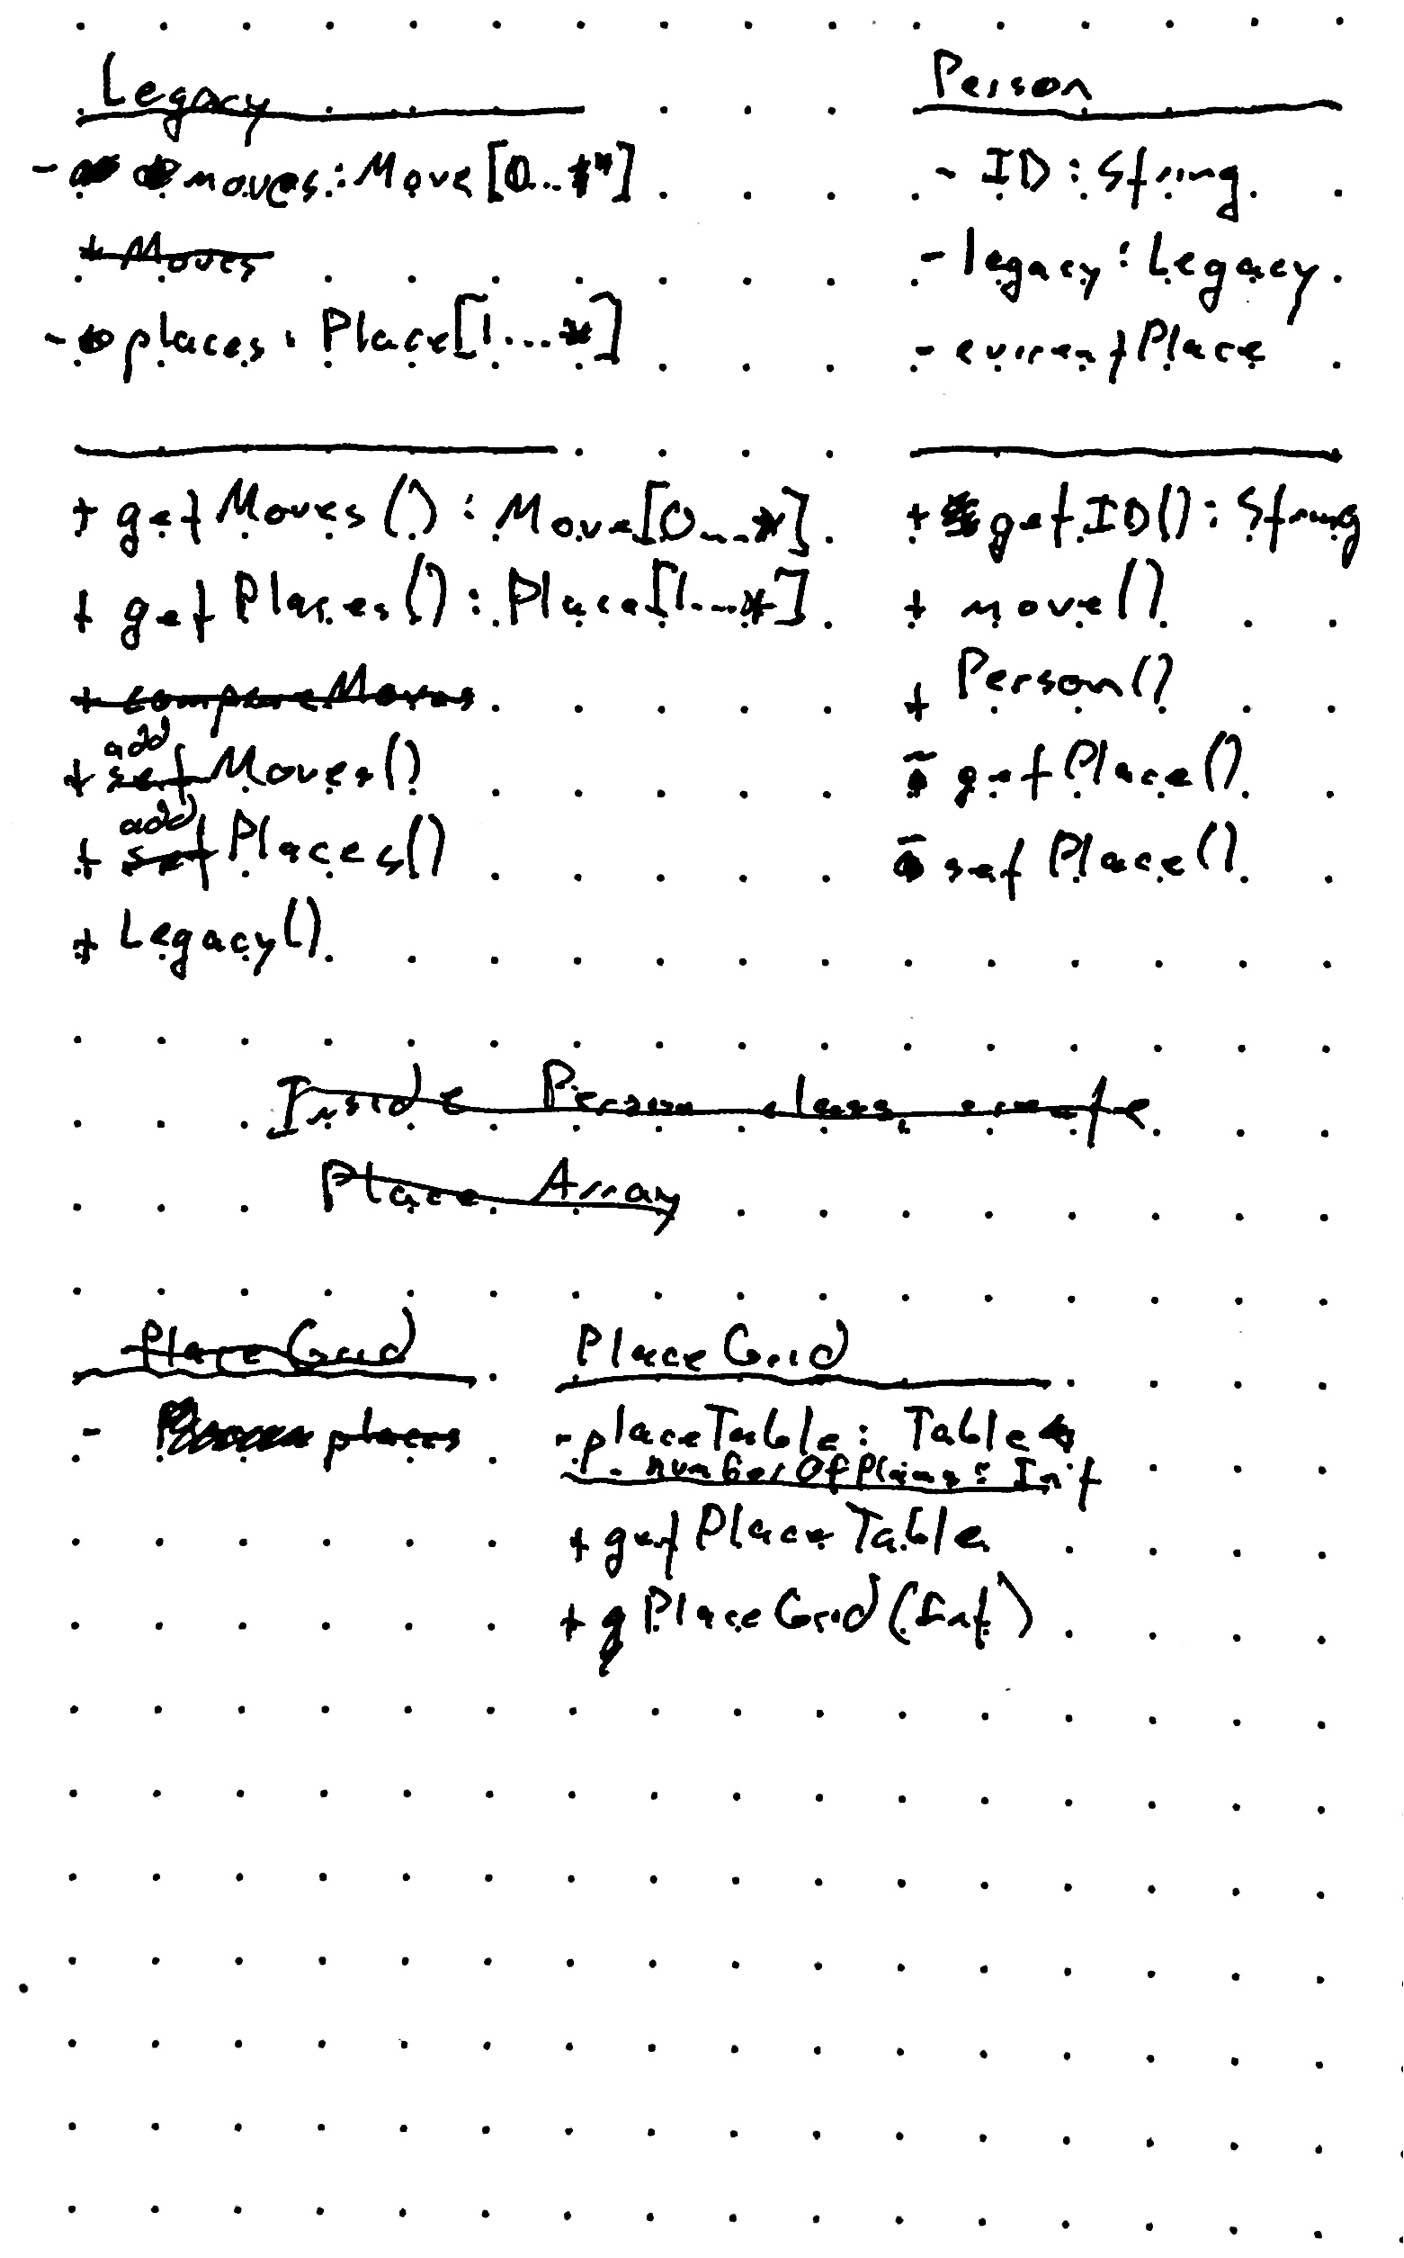 Legacy
- moves: Move[0...*]
+ Moves
- places: Place[1...*]
+ getMoves(): Move[0...*]
+ getPlaces(): Place[1...*]
+ compareMoves
+ add set Moves()
+ add set Places()
+ Legacy()
Person
- ID: String
- legacy: Legacy
- currentPlace
+ getID(): String
+ move()
+ Person()
- getPlace()
- setPlace()
Inside Person class, create
Place Array
PlaceGrid
- places
PlaceGrid
- placeTable: Table
- : Int
+ getPlaceTable
+ PlaceGrid(Int)